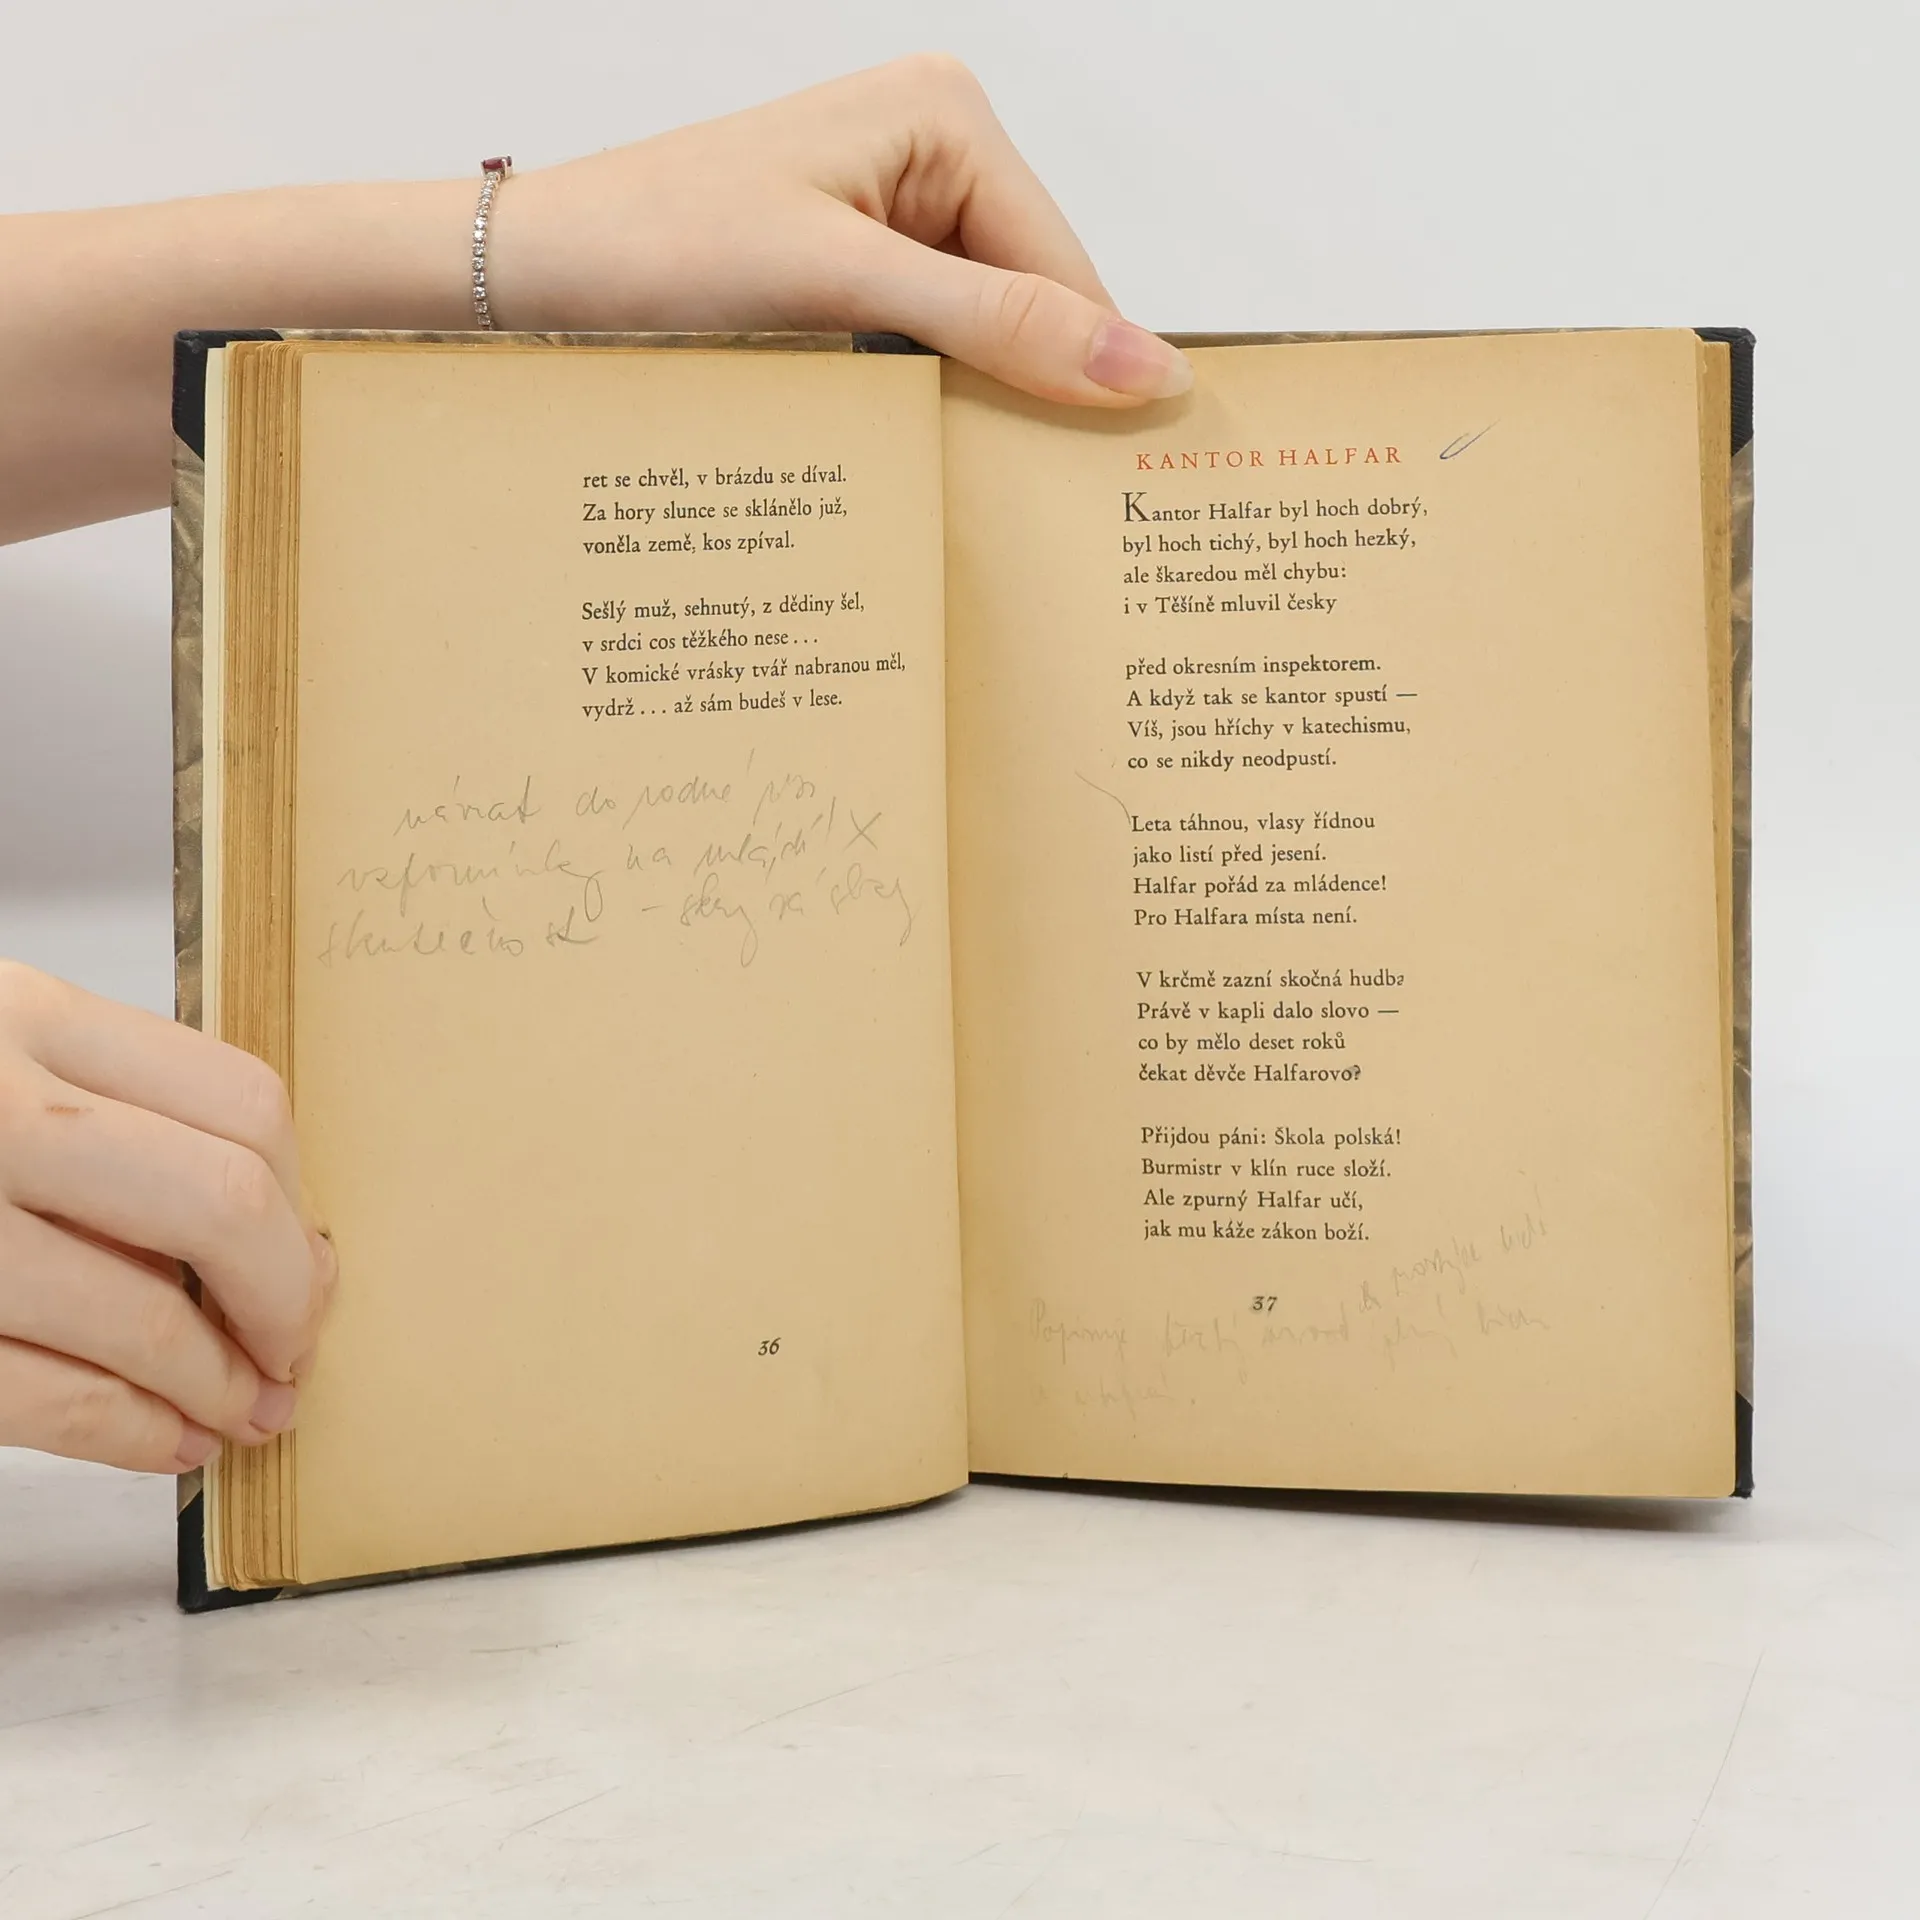 ret se chvěl, v brázdu se díval.
Za hory slunce se sklánělo již,
voněla země, kos zpíval.
Sešlý muž, sehnutý, z dědiny šel,
v srdci cos těžkého nese . . .
V komické vrásky tvář nabranou měl,
vydrž . . . až sám budeš v lese.
návrat do rodné
vzpomínky na mládí X
skutečnost –
36
KANTOR HALFAR
Kantor Halfar byl hoch dobrý,
byl hoch tichý, byl hoch hezký,
ale škaredou měl chybu:
i v Těšíně mluvil česky
před okresním inspektorem.
A když tak se kantor spustí —
Víš, jsou hříchy v katechismu,
co se nikdy neodpustí.
Leta táhnou, vlasy řídnou
jako listí před jesení.
Halfar pořád za mládence!
Pro Halfara místa není.
V krčmě zazní skočná hudba
Právě v kapli dalo slovo —
co by mělo deset roků
čekat děvče Halfarovo?
Přijdou páni: Škola polská!
Burmistr v klín ruce složí.
Ale zpurný Halfar učí,
jak mu káže zákon boží.
37